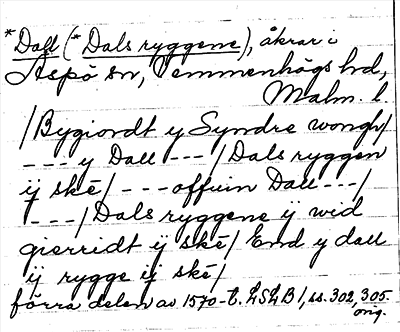 *Dall (*Dals ryggene), åkrar i
Aspö sn, Vemmenhögs hd,
Malm. l.
/Bygiordt y Syndre wongh/
--- y Dall --- /Dals ryggen
ij skē/ --- offuin Dall ---/
---/Dals ryggene ij wid
gierridt ij skē/ End y dall
ij rygge ij skē/
förra delen av 1570-t. LSLB 1, ss. 302, 305.
orig.